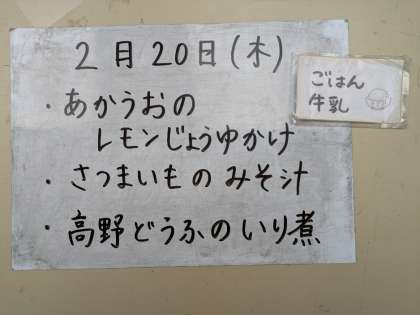 2月20日(木)
・あかうおの
レモンじょうゆかけ
・さつまいものみそ汁
・高野どうふのいり煮
ごはん
牛乳